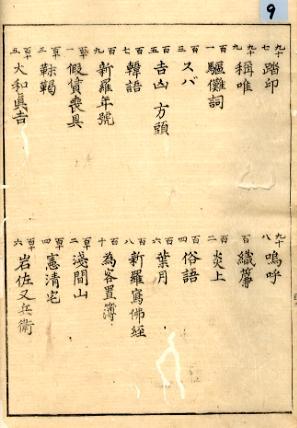 9
九十七 踏印 九十八 嗚呼
九十九 稱唯 百 織簾
百一 驅儺詞 百二 炎上
百三 スバ 百四 俗語
百五 吉凶 方頭 百六 葉月
百七 韓語 百八 新羅寫佛經
百九 新羅年號 百十 為客置簿
百十一 假貸喪具 百十二 淺間山
百十三 靺鞨 百十四 憲清宅
百十五 大和眞吉 百十六 岩佐又兵衛